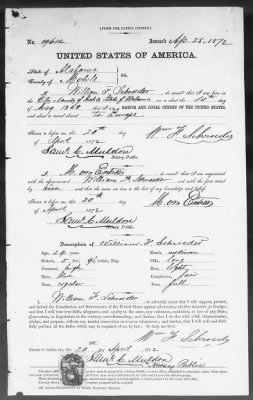 [FORM FOR NATIVE CITIZEN.]
No. 19612 Issued Apr. 25, 1872
UNITED STATES OF AMERICA.
State of Alabama
County of Mobile } ss.
I, William F. Schroeder, do swear that I was born in
City County of Mobile State of Alabama, on or about the 10th day of
May 1850; that I am a NATIVE AND LOYAL CITIZEN OF THE UNITED STATES,
and about to travel abroad to Europe
Sworn to before me, this 20th day
of April 1872 Wm F. Schroeder
Saml. C. Muldon
Notary Public.
I, M. von Embers, do swear that I am acquainted
with the above-named William F. Schroeder, and with the facts stated
by him, and that the same are true to the best of my knowledge and belief.
Sworn to before me, this 20th day
of April 1872 M. von Embers
Saml. C. Muldon
Notary Public.
Description of William F. Schroeder
Age: 24 years. Mouth: medium
Stature: 5 feet, 9½ inches, Eng. Chin: long
Forehead: high Hair: light
Eyes: blue Complexion: fair
Nose: regular Face: full
I, William F. Schroeder, do solemnly swear that I will support, protect,
and defend the Constitution and Government of the United States against all enemies, whether domestic or foreign;
and that I will bear true faith, allegiance, and loyalty to the same, any ordinance, resolution, or law of any State,
Convention, or Legislature to the contrary notwithstanding; and further, that I do this with a full determination,
pledge, and purpose, without any mental reservation or evasion whatsoever; and further, that I will well and faith-
fully perform all the duties which may be required of me by law: So help me God.
Wm F. Schroeder
Sworn to before me, this 20 day of April, 1872
Saml. C. Muldon
Notary Public